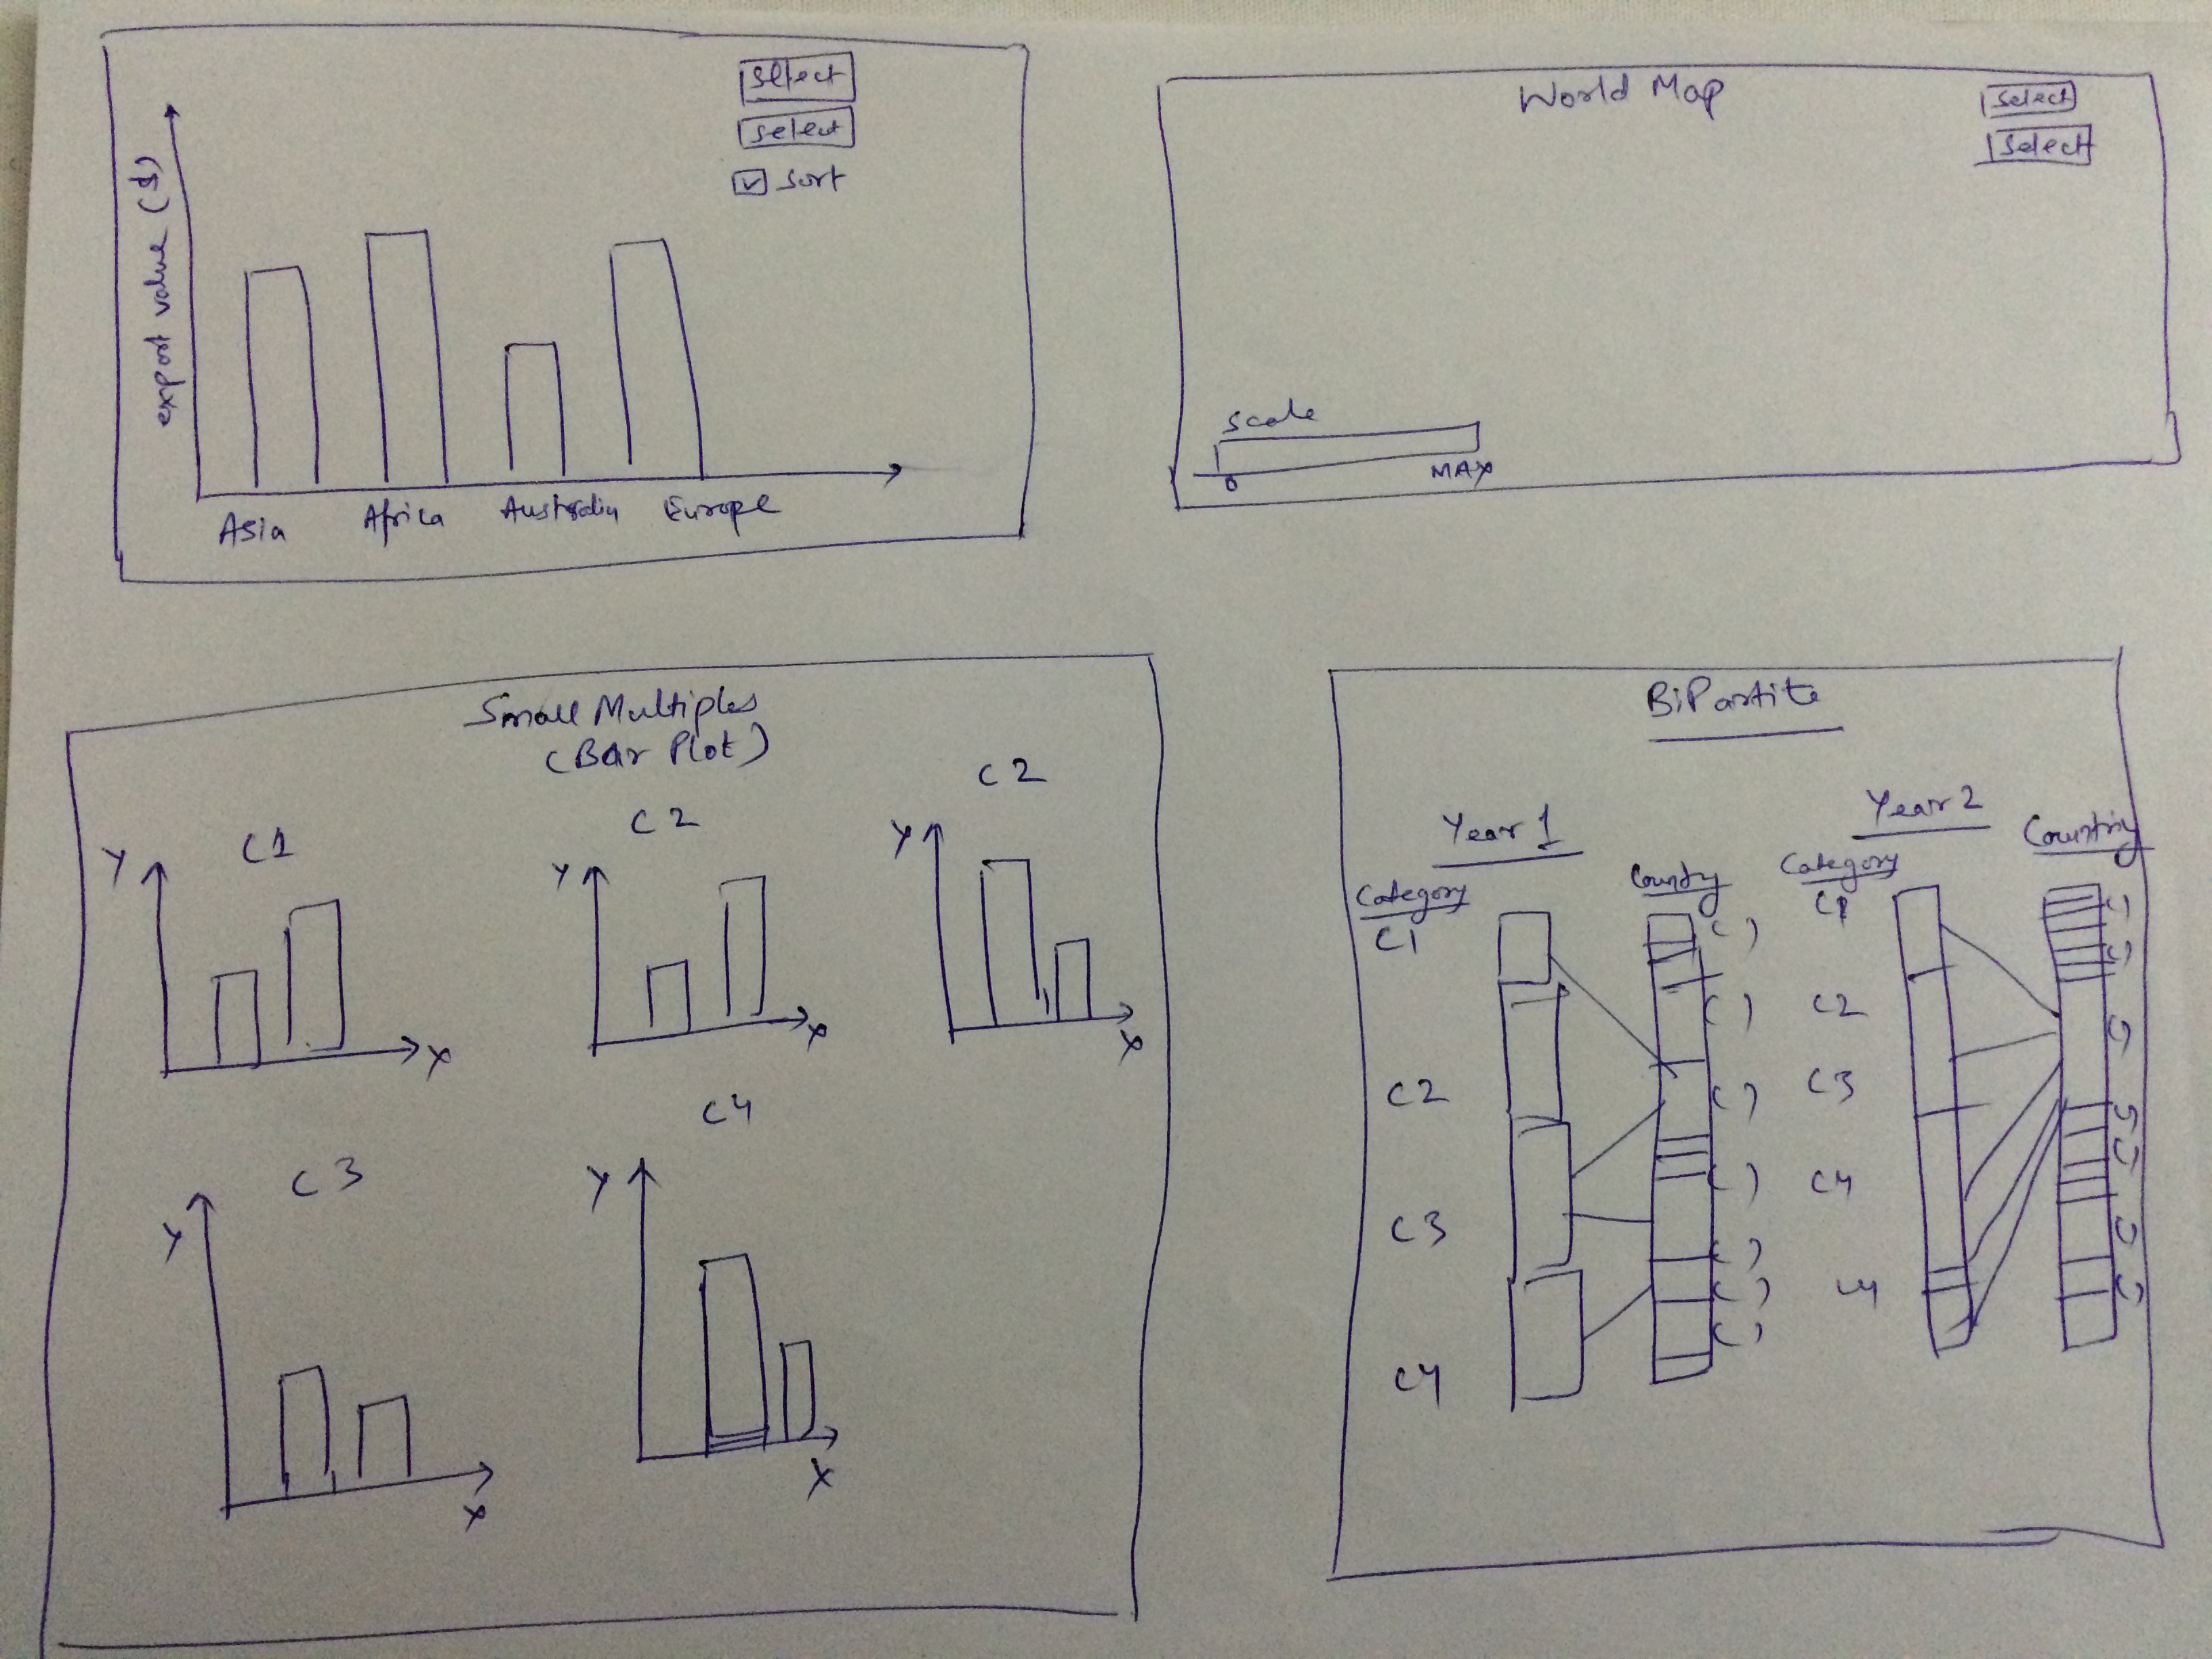 Select
select
sort
export value ($)
Asia
Africa
Australia
Europe
World Map
Select
Select
scale
0
MAX
Small Multiples
(Bar Plot)
C1
Y
X
C2
Y
X
C2
Y
X
C3
Y
X
C4
Y
X
BiPartite
Year 1
Category
Country
C1
C2
C3
C4
( )
( )
( )
( )
( )
( )
( )
Year 2
Category
Country
C1
C2
C3
C4